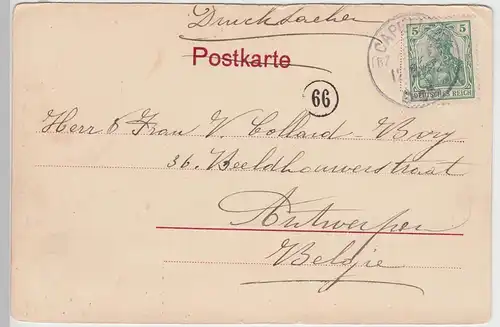 Drucksachen
Postkarte
5 5
DEUTSCHES REICH
66
Herr & Frau V. Collard-Bvry
36. Beeldhouwerstraat
Antwerpen
Belgie